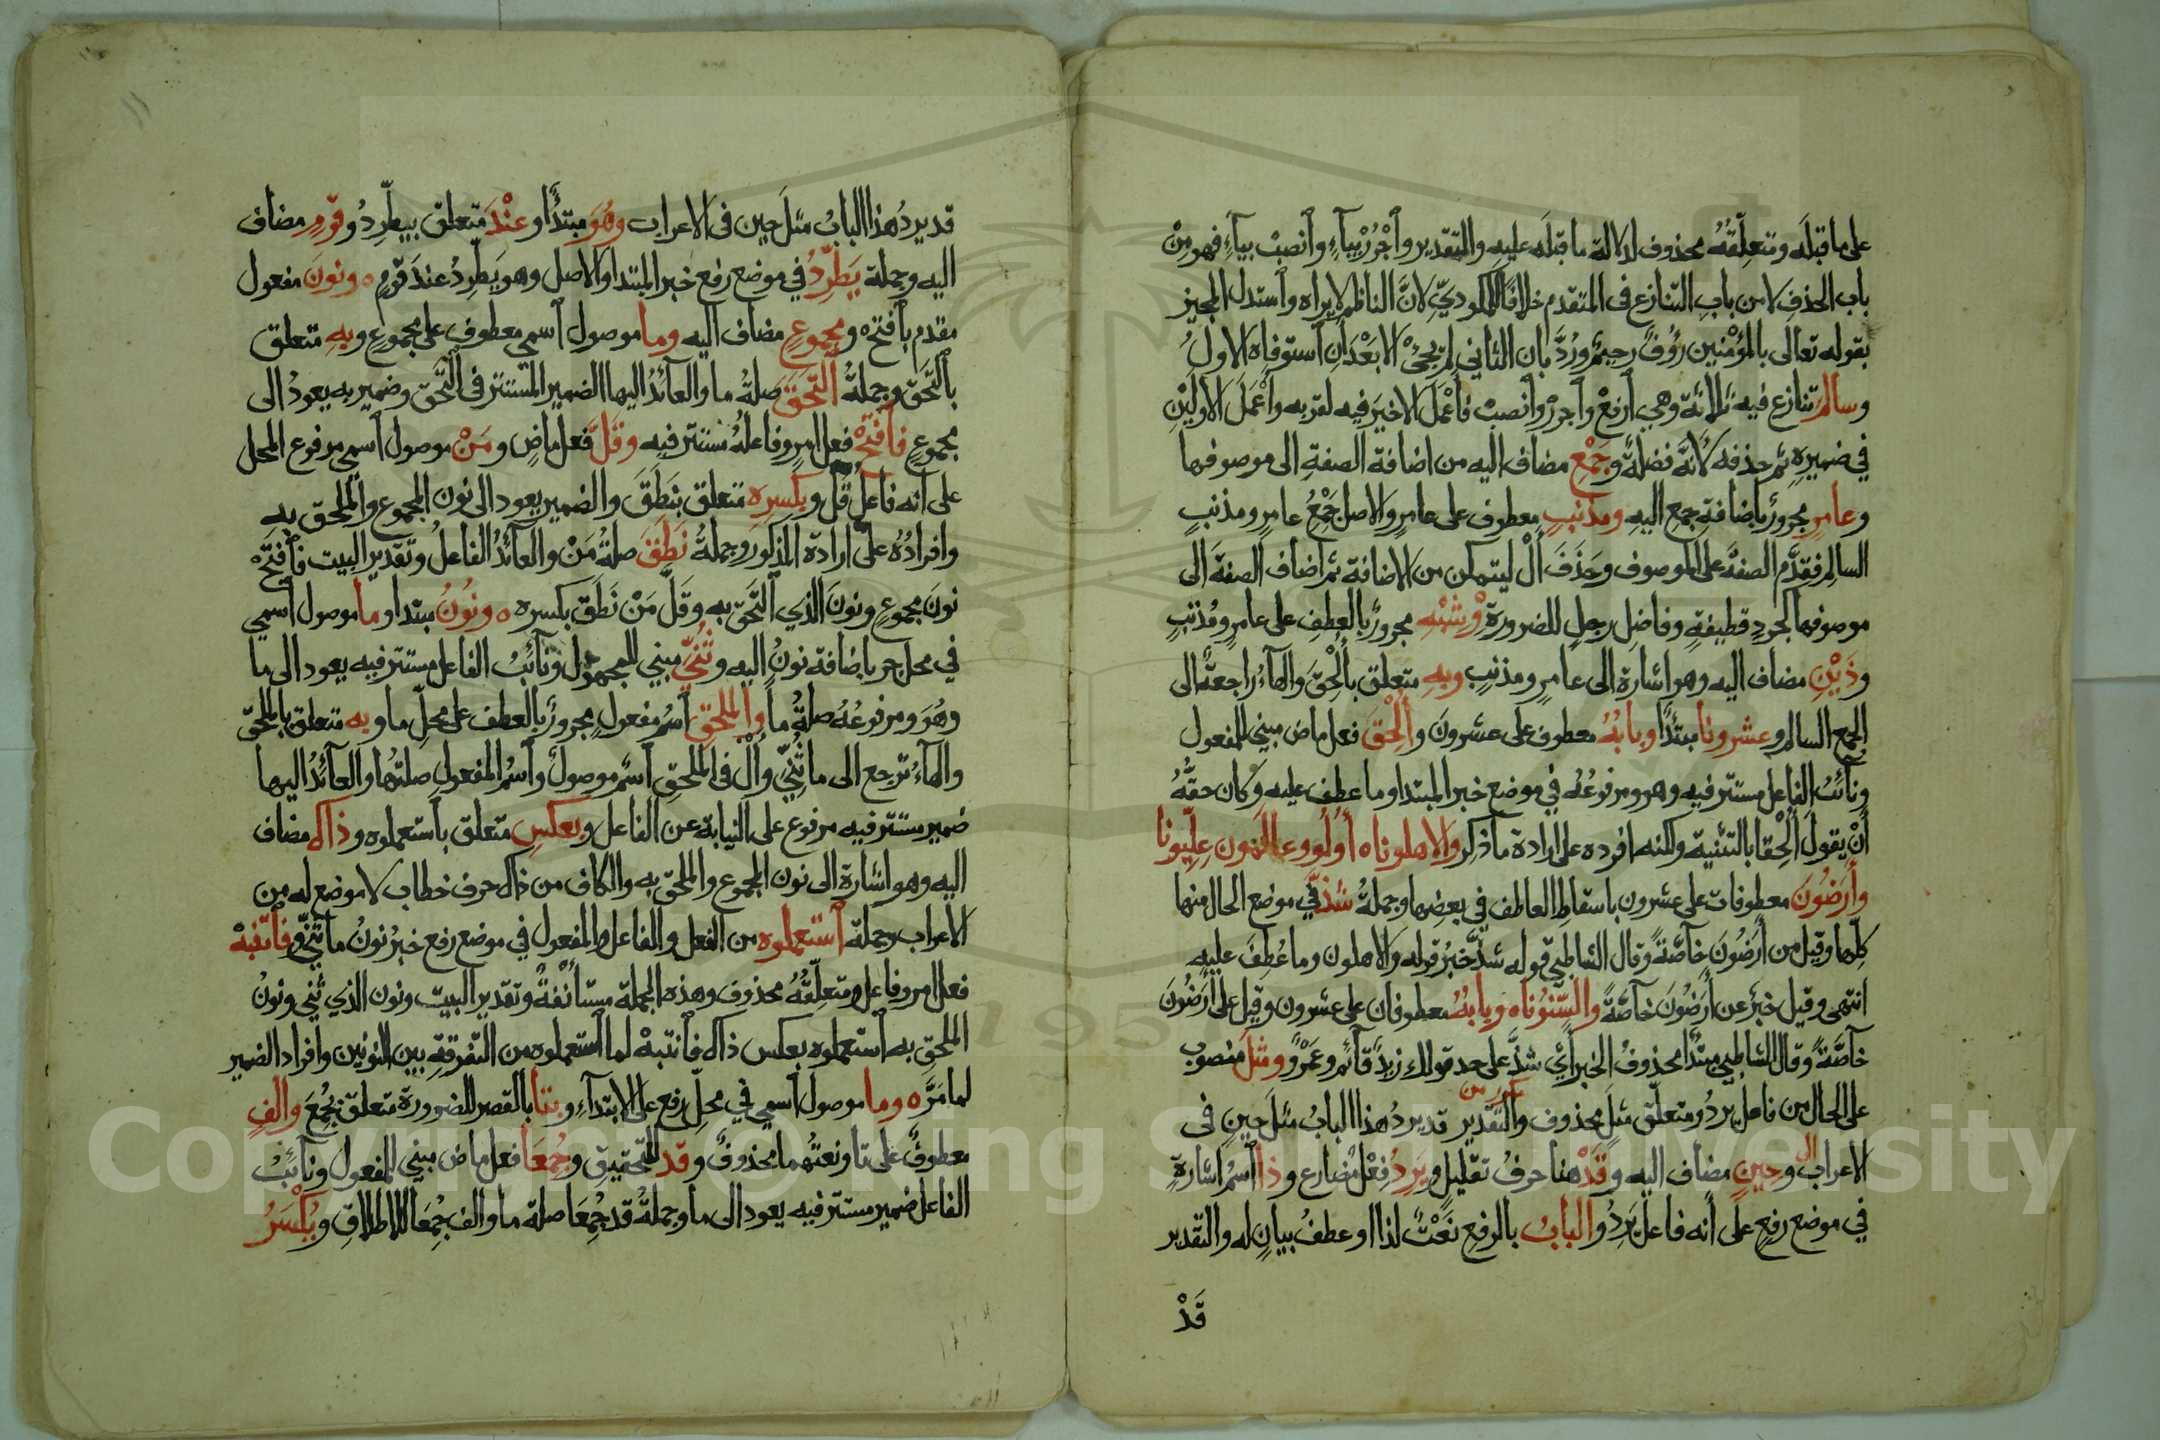 على ما قبله ومتعلِّقُهُ محذوف لدلالة ما قبله عليه والتقدير وٱجْرُرْ بِيآءٍ وٱنصِبْ بيآءٍ فهو مِنْ
باب الحذف لا من باب التنازع فى المتقدم خلافًا للمكوديّ لانَّ الناظم لا يراه وٱستدل المجيز
بقوله تعالى بالمؤْمنين رؤُفٌ رحيمٌ ورُدَّ بان الثاني لم يجئْ الا بَعْدَ أنِ ٱستوفاه الاولُ
وسالمَ تنازع فيه ثلاثة وهي ٱرفعْ وٱجررْ وٱنصبْ فأعْمَلَ الاخيرَ فيه لقربه وأعْمَلَ الاولَيْنِ
في ضميرِهِ ثم حذفه لانَّه فضلةٌ وجَمْعِ مضاف اليه من اضافة الصفةِ الى موصوفها
وعامرٍ مجرورٌ باضافةِ جمعِ اليهِ ومذنبِ معطوف على عامرٍ والاصل جَمْعُ عامرٍ ومذنبٍ
السالم فقدَّم الصفةَ على الموصوف وحَذَفَ ألْ ليتمكن من الاضافة ثم أضاف الصفةَ الى
موصوفها كجردِ قطيفةٍ وفاضلِ رجلٍ للضرورة وشبْهِ مجرورٌ بالعطفِ على عامرٍ ومُذنبٍ
وذَيْنِ مضاف اليه وهو اشارة الى عامرٍ ومذنبٍ وبهِ متعلق بأُلْحِقَ والهآءُ راجعةٌ الى
الجمع السالم وعشرونا مبتدأ وبابُهُ معطوف على عشرونَ وأُلْحِقَ فعل ماض مبنى للمفعول
ونآئبُ الفاعل مستتر فيه وهو ومرفوعُهُ في موضع خبر المبتدا وما عطف عليه وكان حقُّهُ
أنْ يقولَ أُلْحِقا بالتثنية ولكنه افرده على ارادة ما ذكر والاهلونا ه أُولُو وعالَمون عِلِّيُّونا
وأَرَضُونَ معطوفات على عشرون باسقاط العاطف في بعضِها وجملةُ شذّ في موضع الحال منها
كلِّها وقيل من أَرَضُونَ خآصَّةً وقال الشاطبي قوله شذَّ خبرُ قوله والاهلون وما عُطِفَ عليهِ
انتهى وقيل خبرٌ عن أَرَضُونَ خآصَّةً والسِّنُونا ه وبابُهُ معطوفان على عشرون وقيل على أَرَضُونَ
خآصَّةً وقال الشاطبي مبتدأ محذوفُ الخبر أي شذَّ على حد قولك زيدٌ قآئمٌ وعَمْرٌو ومثلَ منصوبٌ
على الحال من فاعل يردُ ومتعلِّق مثلَ محذوف والتقدير قد يردُ هذا البابُ مثلَ حينٍ فى
الاعراب وحينٍ مضاف اليه وقَدْ هنا حرفُ تقليلٍ ويَرِدُ فعْلٌ مُضارع وذا ٱسمُ اشارةٍ
في موضع رفعٍ على أنه فاعل يَرِدُ والبابُ بالرفع نَعْتٌ لذا او عطفُ بيانٍ له والتقدير
قَدْ
قد يردُ هذا البابُ مثلَ حين فى الاعراب وهُوَ مبتدأ وعنْدَ متعلق بيطَّردُ وقومٍ مضاف
اليه وجملة يَطّرِدُ في موضع رفع خبر المبتدا والاصل وهو يَطَّردُ عندَ قومٍ ه ونونَ مفعول
مقدم بٱفتحْ ومجموعٍ مضاف اليه وما موصول ٱسمي معطوف على مجموعٍ وبهِ متعلق
بٱلتَحَق وجملةُ ٱلتَحَقَ صلةُ ما والعآئدُ اليها الضمير المستتر فى ٱلتَحق وضمير به يعودُ الى
مجموعٍ فٱفتَحْ فعل امرٍ وفاعلهُ مستتر فيه وقَلَّ فعل ماضٍ ومَنْ موصول ٱسمي مرفوع المحل
على انه فاعل قلَّ وبكسرِهِ متعلق بنَطَقَ والضمير يعود الى نون المجموع والملحقِ به
وافرادُهُ على ارادة المذكور وجملةُ نَطَقَ صلةُ مَنْ والعآئدُ الفاعلُ وتقدير البيت فٱفتحْ
نونَ مجموعٍ ونونَ الذي ٱلتحَقَ به وقَلَّ مَنْ نَطَقَ بكسره ه ونُونُ مبتدا وما موصول ٱسمي
في محل جر باضافة نونُ اليه وثُنّيَ مبني للمجهول ونآئبُ الفاعل مستتر فيه يعود الى ما
وهُوَ ومرفوعُهُ صلةُ ما والملحقِ ٱسمُ مفعولٍ مجرورٌ بالعطف على محلِّ ما وبه متعلق بالملحق
والهآءُ ترجع الى ما ثُنِّيَ وألْ فى الملحق ٱسمٌ موصولٌ وٱسمُ المفعولِ صلتُها والعآئدُ اليها
ضمير مستتر فيه مرفوع على النيابة عن الفاعل وبعكسِ متعلق بٱستعملوه وذاك مضاف
اليه وهو اشارة الى نون المجموع والملحق به والكاف من ذاك حرف خطاب لا موضع له من
الاعراب وجملة ٱستعملوه من الفعل والفاعل والمفعول في موضع رفع خبرُ نونُ ما ثُنّيَ وفٱنتبهْ
فعل امر وفاعل ومتعلِّقُهُ محذوف وهذه الجملة مستأنفةٌ وتقدير البيت ونون الذي ثُني ونونُ
الملحق به ٱستعملوه بعكس ذاك فٱنتبهْ لما ٱستعملوه من التفرقةِ بين النونين وافراد الضمير
لما مَرَّ ه وما موصول ٱسمي في محلّ رفع على الابتدآءِ وبتا بالقصر للضرورة متعلق بجُمِعَ وألفٍ
معطوفٌ على تا ونعتُهما محذوفٌ وقد للتحقيق وجُمِعَا فعل ماض مبني للمفعول ونآئبُ
الفاعل ضمير مستتر فيه يعود الى ما وجملةُ قد جُمِعَا صلة ما والف جُمِعَا للاطلاقِ ويُكْسَرُ